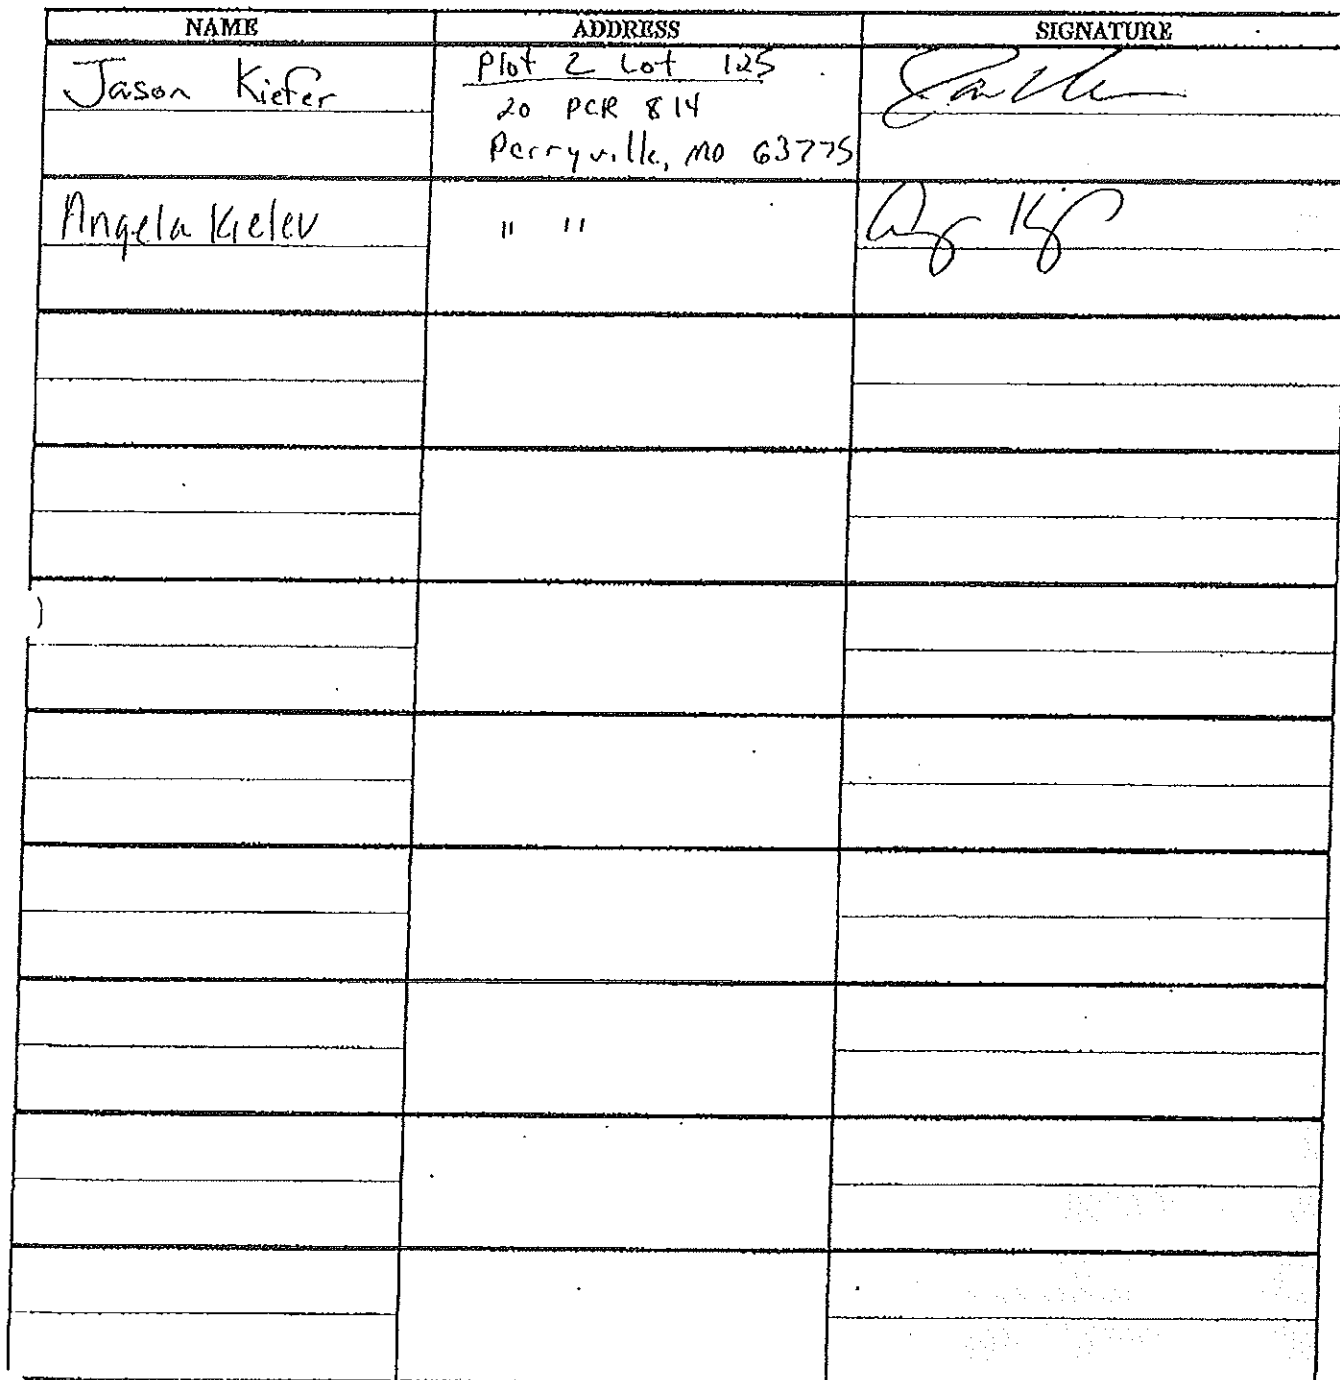 NAME ADDRESS SIGNATURE
Jason Kiefer
Plot 2 Lot 125
20 PCR 814
Perryville, MO 63775
Angela Kiefer
" "